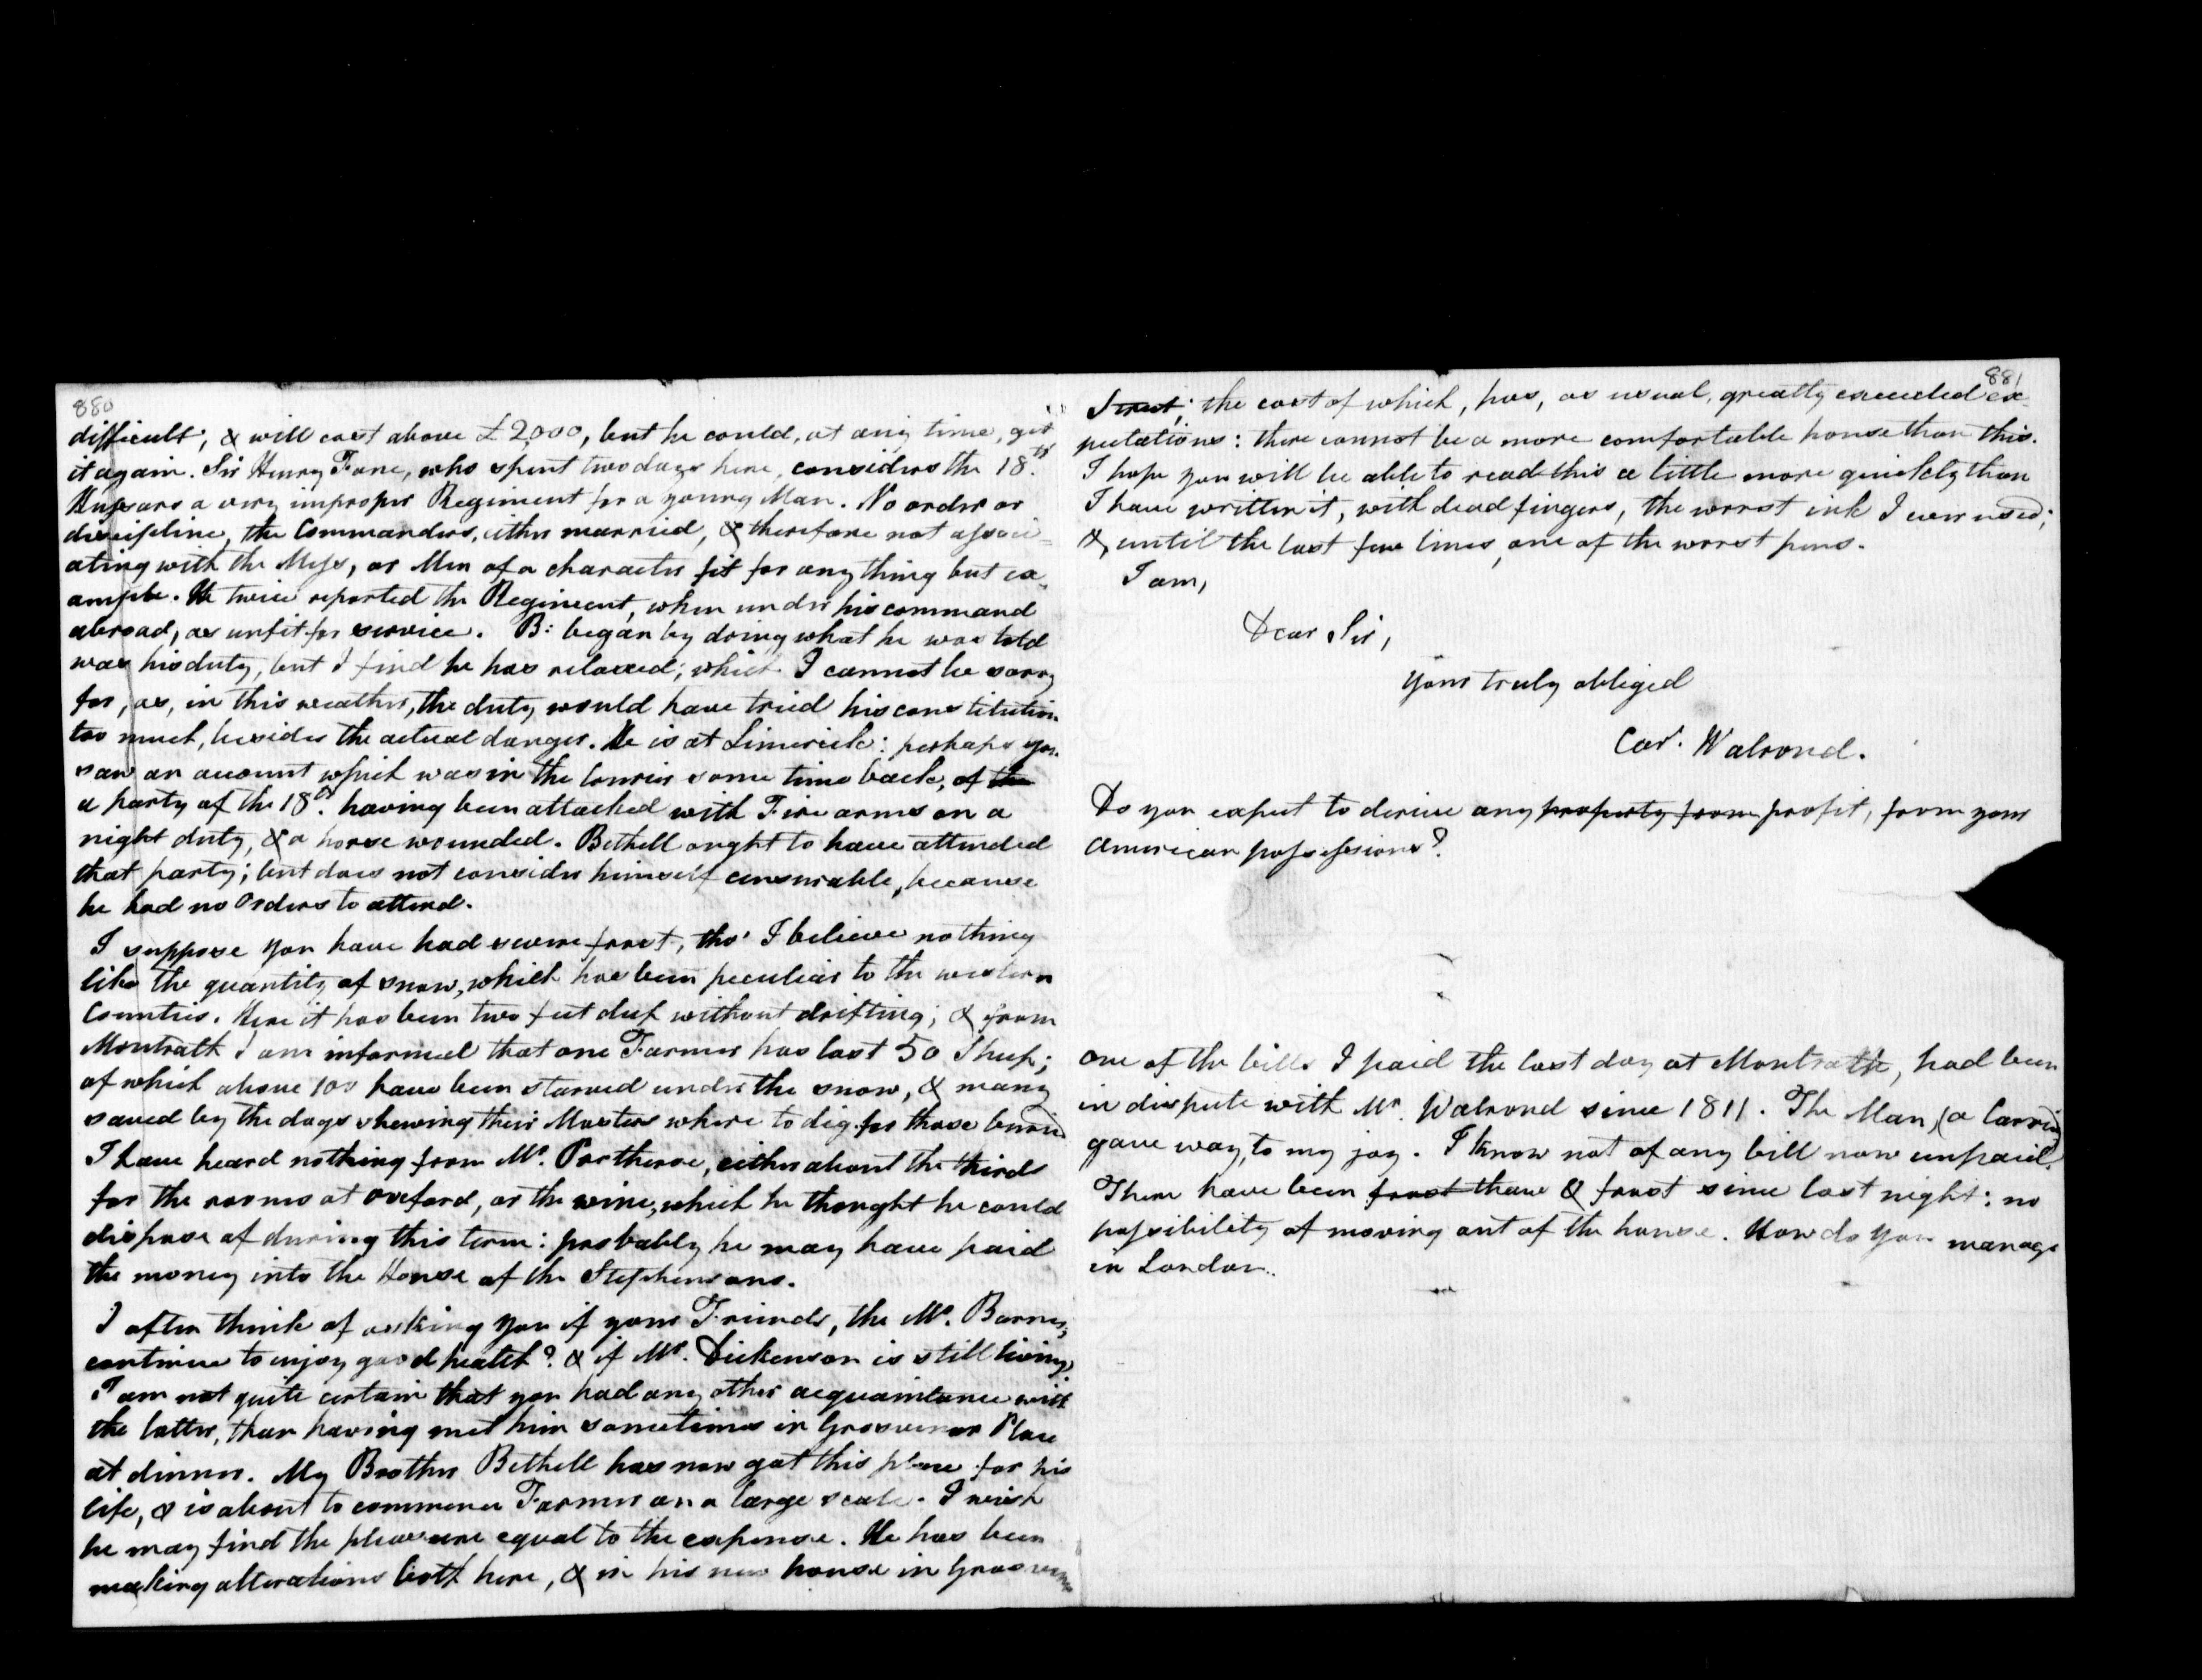 880
difficult; & will cost above £2,000, but he could, at any time, get
it again. Sir Henry Fane, who spent two days here, considers the 18th
Hussars a very improper Regiment for a young Man. No order or
discipline, the Commanders, either married, & therefore not associ=
ating with the Mess, or Men of a character fit for any thing but ex=
ample. He twice reported the Regiment, when under his command
abroad, as unfit for service. B: began by doing what he was told
was his duty, but I find he has relaxed; which I cannot be sorry
for, as, in this weather, the duty would have tried his constitution
too much, besides the actual danger. He is at Limerick: perhaps you
saw an account which was in the Courier some time back, of the
a party of the 18th having been attacked with Fire arms on a
night duty, & a horse wounded. Bethell ought to have attended
that party; but does not consider himself censurable, because
he had no Orders to attend.
I suppose you have had severe frost, tho' I believe nothing
like the quantity of snow, which has been peculiar to the western
Counties. Here it has been two feet deep without drifting; & from
Montrath I am informed that one Farmer has lost 50 Sheep;
of which above 100 have been starved under the snow, & many
saved by the dogs shewing their Masters where to dig for those buried
I have heard nothing from Mr. Portherse, either about the thirds
for the rooms at Oxford, or the wine, which he thought he could
dispose of during this term: probably he may have paid
the money into the House of the Stephensons.
I often think of asking you if your Friends, the Mr. Barnes,
continue to enjoy good health? & if Mr. Dickenson is still living,
I am not quite certain that you had any other acquaintance with
the latter, than having met him sometimes in Grosvenor Place
at dinner. My Brother Bethell has now got this place for his
life, & is about to commence Farmer on a large scale. I wish
he may find the pleasure equal to the expense. He has been
making alterations both here, & in his new house in Grosvenor
881
Street; the cost of which, has, as usual, greatly exceeded ex=
pectations: there cannot be a more comfortable house than this.
I hope you will be able to read this a little more quickly than
I have written it, with dead fingers, the worst ink I ever used;
&, until the last few lines, one of the worst pens.
I am,
Dear Sir,
Yours truly obliged
Car. Walrond.
Do you expect to derive any property from profit, from your
American possessions?
One of the bills I paid the last day at Montrath, had been
in dispute with Mr. Walrond since 1811. The Man, (a Carrier)
gave way, to my joy. I know not of any bill now unpaid.
There have been frost thaw & frost since last night: no
possibility of moving out of the house. How do you manage
in London.